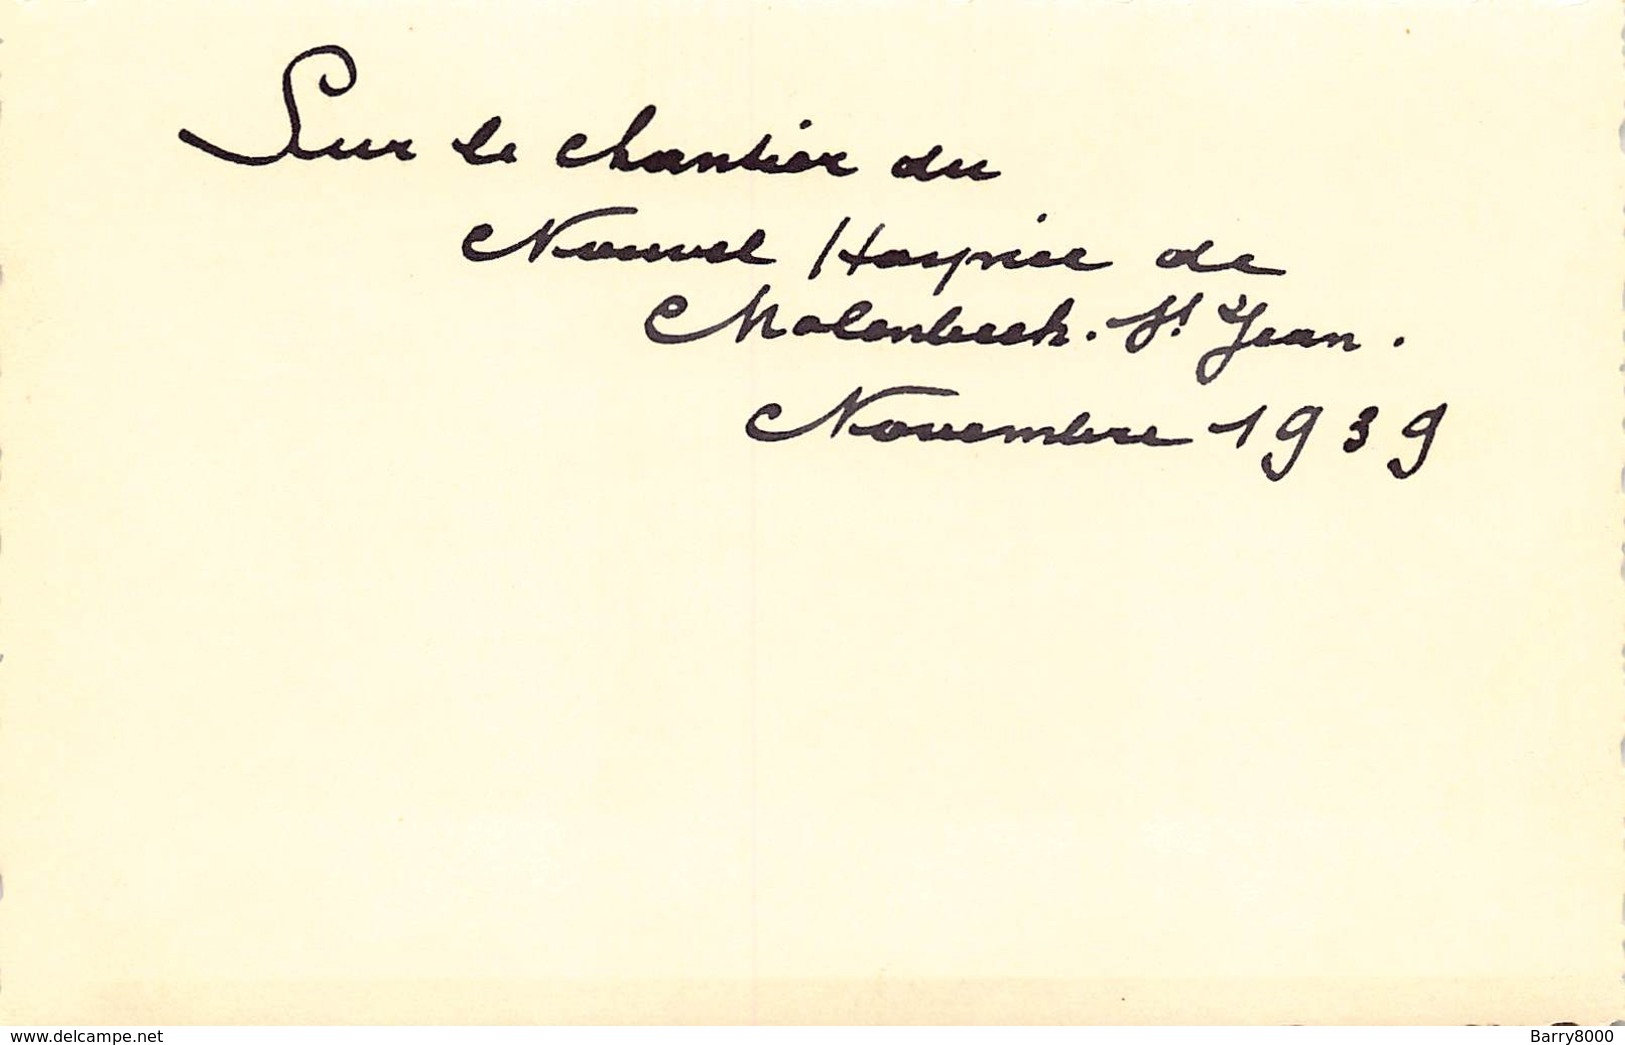 Sur le chantier du
Nouvel Hospice de
Molenbeek. St Jean.
Novembre 1939
www.delcampe.net
Barry8000